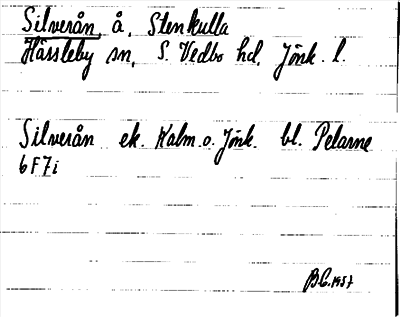 Silverån å, Stenkulla
Hässleby sn, S. Vedbo hd, Jönk. l.
Silverån ek. Kalm. o. Jönk. bl. Pelarne
6F7i
B.C. 1957